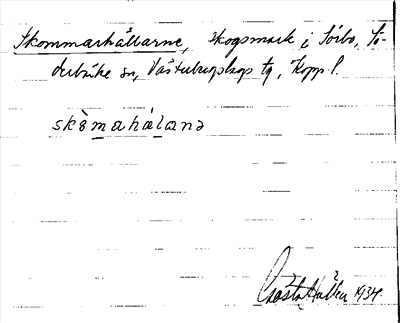 Skommarhållarne, skogsmark i Sörbo, Sö-
derbärke sn, Västerbergslags tg, Kopp l.
skòmahálanə
Gösta Hallén 1934.